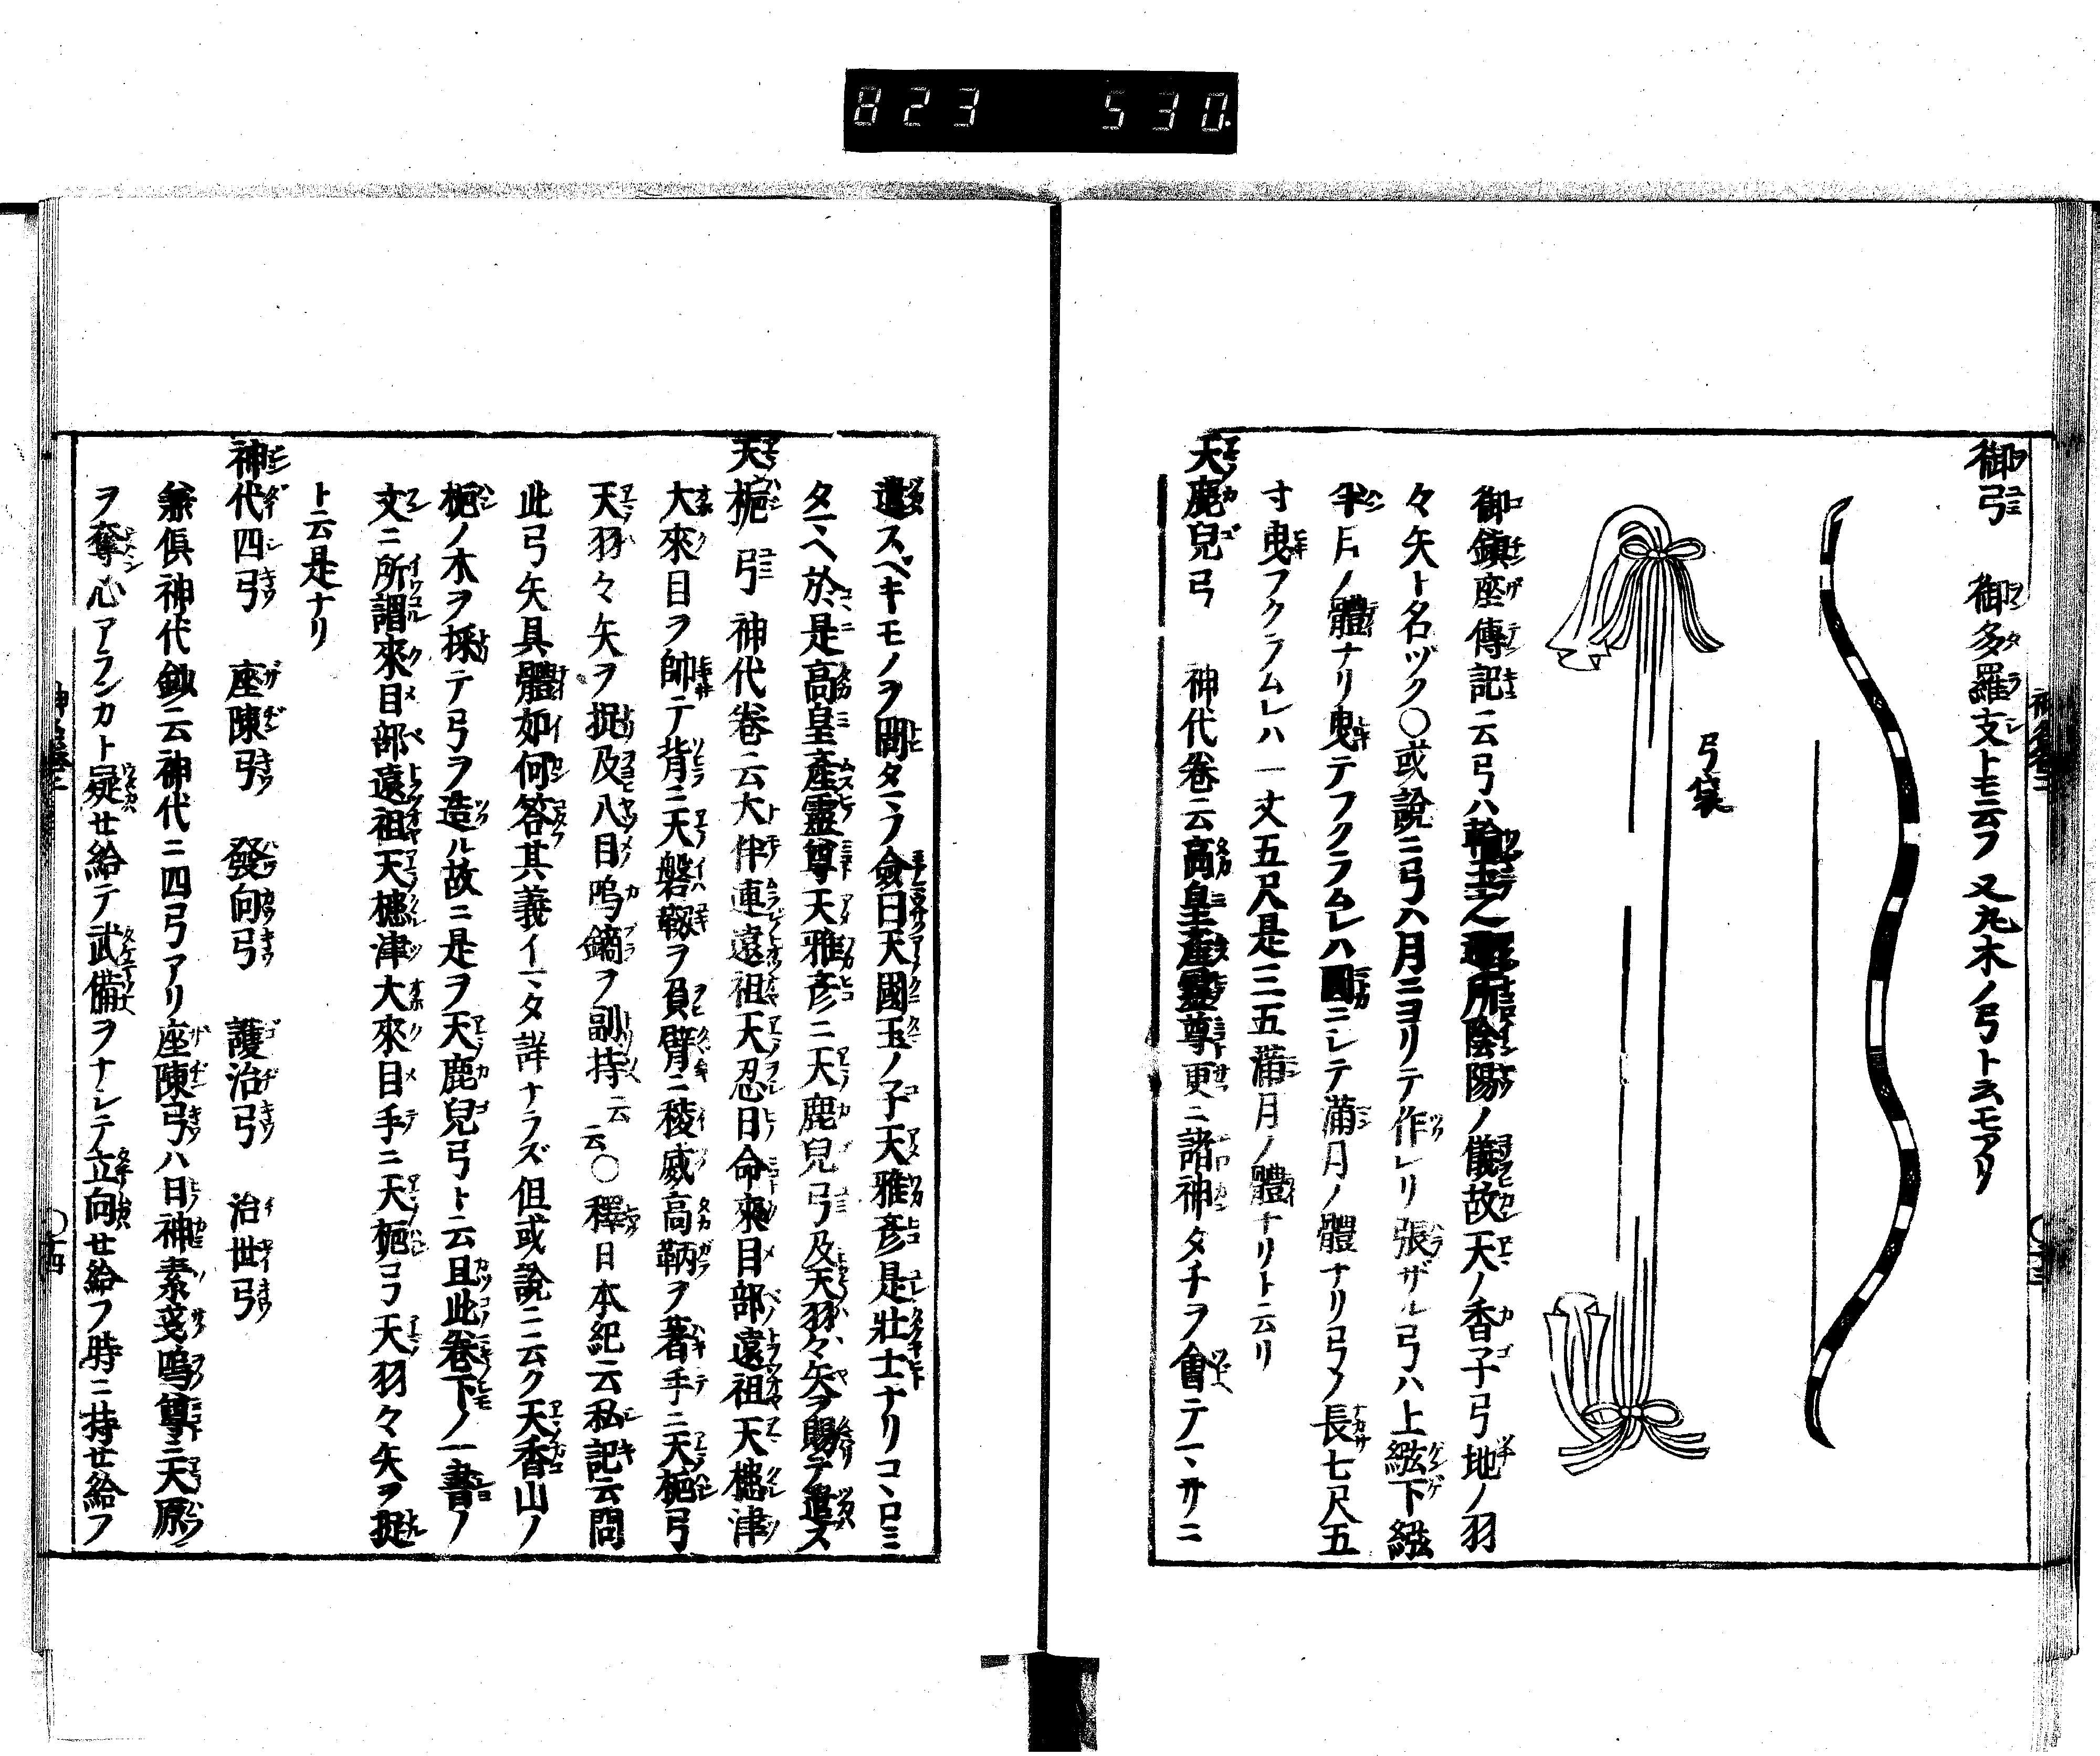 823 530.
御弓 御多羅支トモ云フ 又丸木ノ弓ト云モアリ
弓袋
御鎮座傳記ニ云弓ハ輪王之所陰陽ノ儀故天ノ香子弓地ノ羽
々矢ト名ヅク〇或説ニ弓ハ月ニヨリテ作レリ張ザル弓ハ上絃下絃
半月ノ體ナリ曳テフクラムレハ圓ニシテ蒲月ノ體ナリ弓ノ長七尺五
寸曳フクラムレハ一丈五尺是三五蒲月ノ體ナリト云リ
天鹿兒弓 神代巻云高皇産靈尊更ニ諸神タチヲ會テマサニ
遣スベキモノヲ問タマフ僉曰天國玉ノ子天雅彦是壮士ナリコヽロミ
タマヘ於是高皇産靈尊天雅彦ニ天鹿兒弓及天羽々矢ヲ賜テ遣ス
天梔弓 神代巻云大伴連遠祖天忍日命來目部遠祖天槵津
大來目ヲ帥テ背ニ天磐靫ヲ負臂ニ稜威高鞆ヲ著手ニ天梔弓
天羽々矢ヲ捉及八目鳴鏑ヲ副持云云〇釋日本紀云私記云問
此弓矢具體如何答其義イマタ詳ナラズ但或說ニ云ク天香山ノ
梔ノ木ヲ採テ弓ヲ造ル故ニ是ヲ天鹿兒弓ト云且此巻下ノ一書ノ
文ニ所謂來目部遠祖天槵津大來目手ニ天梔弓天羽々矢ヲ捉
ト云是ナリ
神代四弓 座陳弓 發向弓 護治弓 治世弓
兼倶神代鈔云神代ニ四弓アリ座陳弓ハ日神素戔嗚尊ニ天原
ヲ奪心アランカト疑せ給テ武備ヲナレテ立向せ給フ時ニ持せ給フ